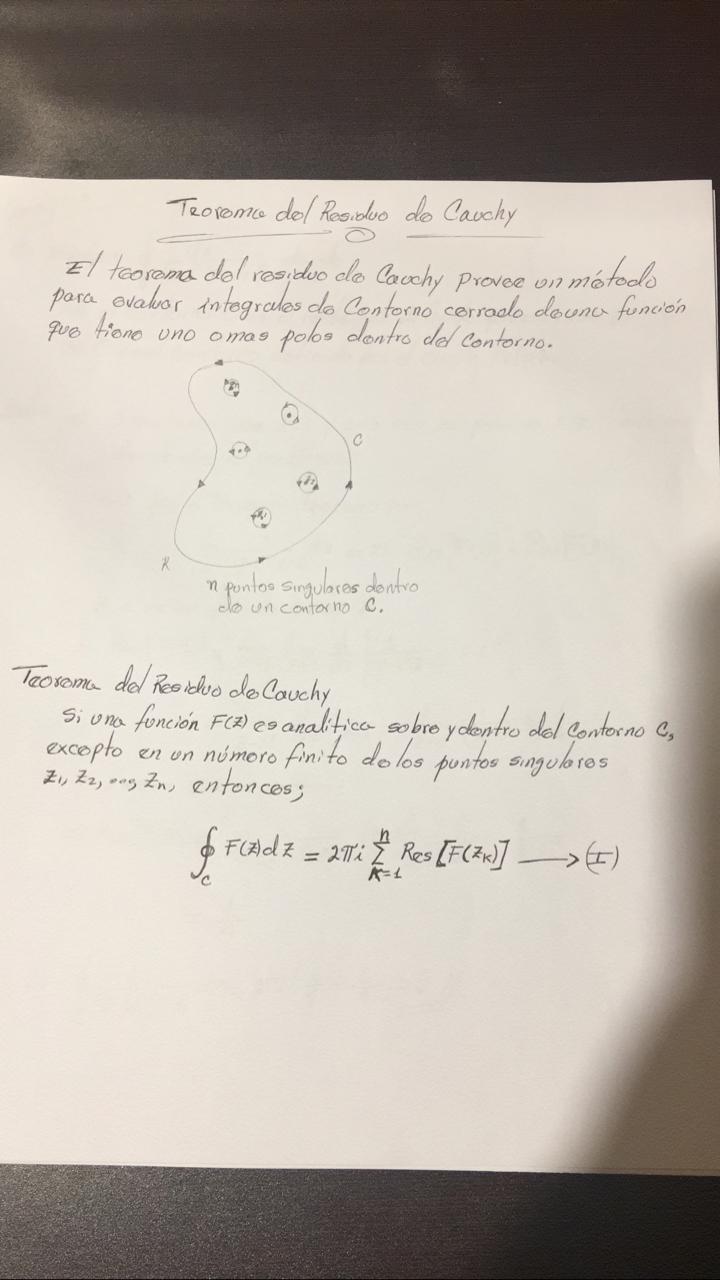 Teorema del Residuo de Cauchy
El teorema del residuo de Cauchy provee un método
para evaluar integrales de Contorno cerrado de una función
que tiene uno o mas polos dentro del contorno.
C
R
n puntos singulares dentro
de un contorno C.
Teorema del Residuo de Cauchy
Si una función F(z) es analítica sobre y dentro del contorno C,
excepto en un número finito de los puntos singulares
z₁, z₂, ..., zₙ, entonces;
∮_C F(z)dz = 2πi Σ_{K=1}^{n} Res[F(z_K)] ⟶ (I)